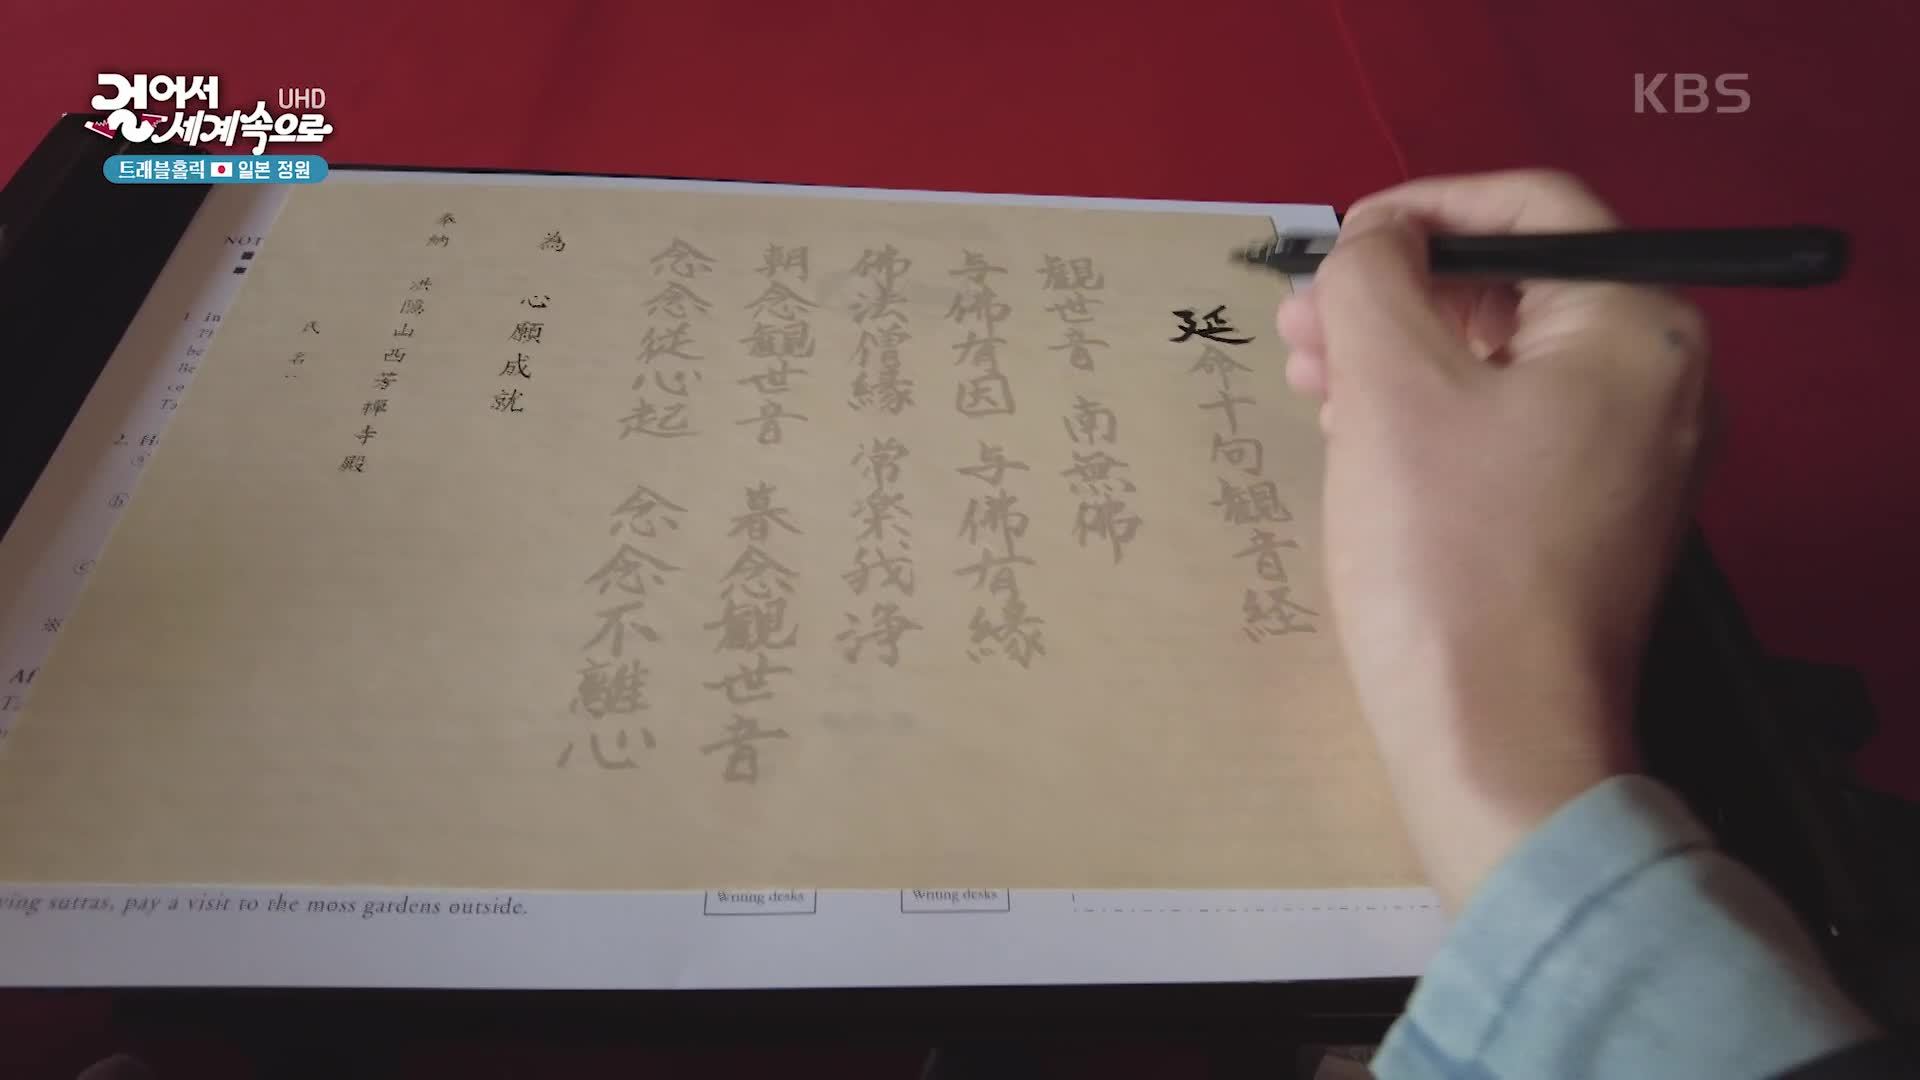 걸어서
세계속으로
UHD
트래블홀릭 일본 정원
KBS
延命十句観音経
観世音 南無佛
与佛有因 与佛有縁
佛法僧縁 常楽我浄
朝念観世音 暮念観世音
念念従心起 念念不離心
為 心願成就
奉納 洪隠山西芳禅寺殿
氏名
NOT
1. in
Th
be
Be
co
Ta
2.
ⓐ
ⓑ
ⓒ
※
Af
ving sutras, pay a visit to the moss gardens outside.
Writing desks
Writing desks